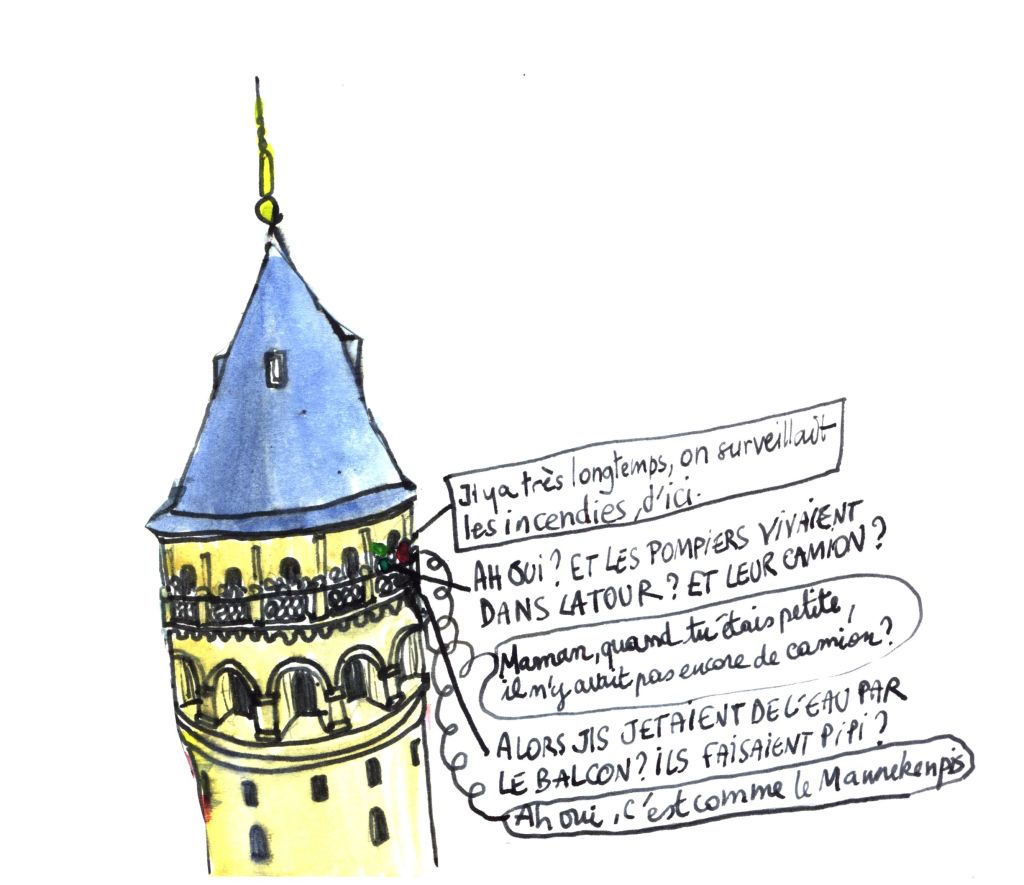 Il y a très longtemps, on surveillait
les incendies, d'ici.
AH OUI? ET LES POMPIERS VIVAIENT
DANS LA TOUR? ET LEUR CAMION?
Maman, quand tu étais petite,
il n'y avait pas encore de camion?
ALORS ILS JETAIENT DE L'EAU PAR
LE BALCON? ILS FAISAIENT PIPI?
Ah oui, c'est comme le Mannekenpis